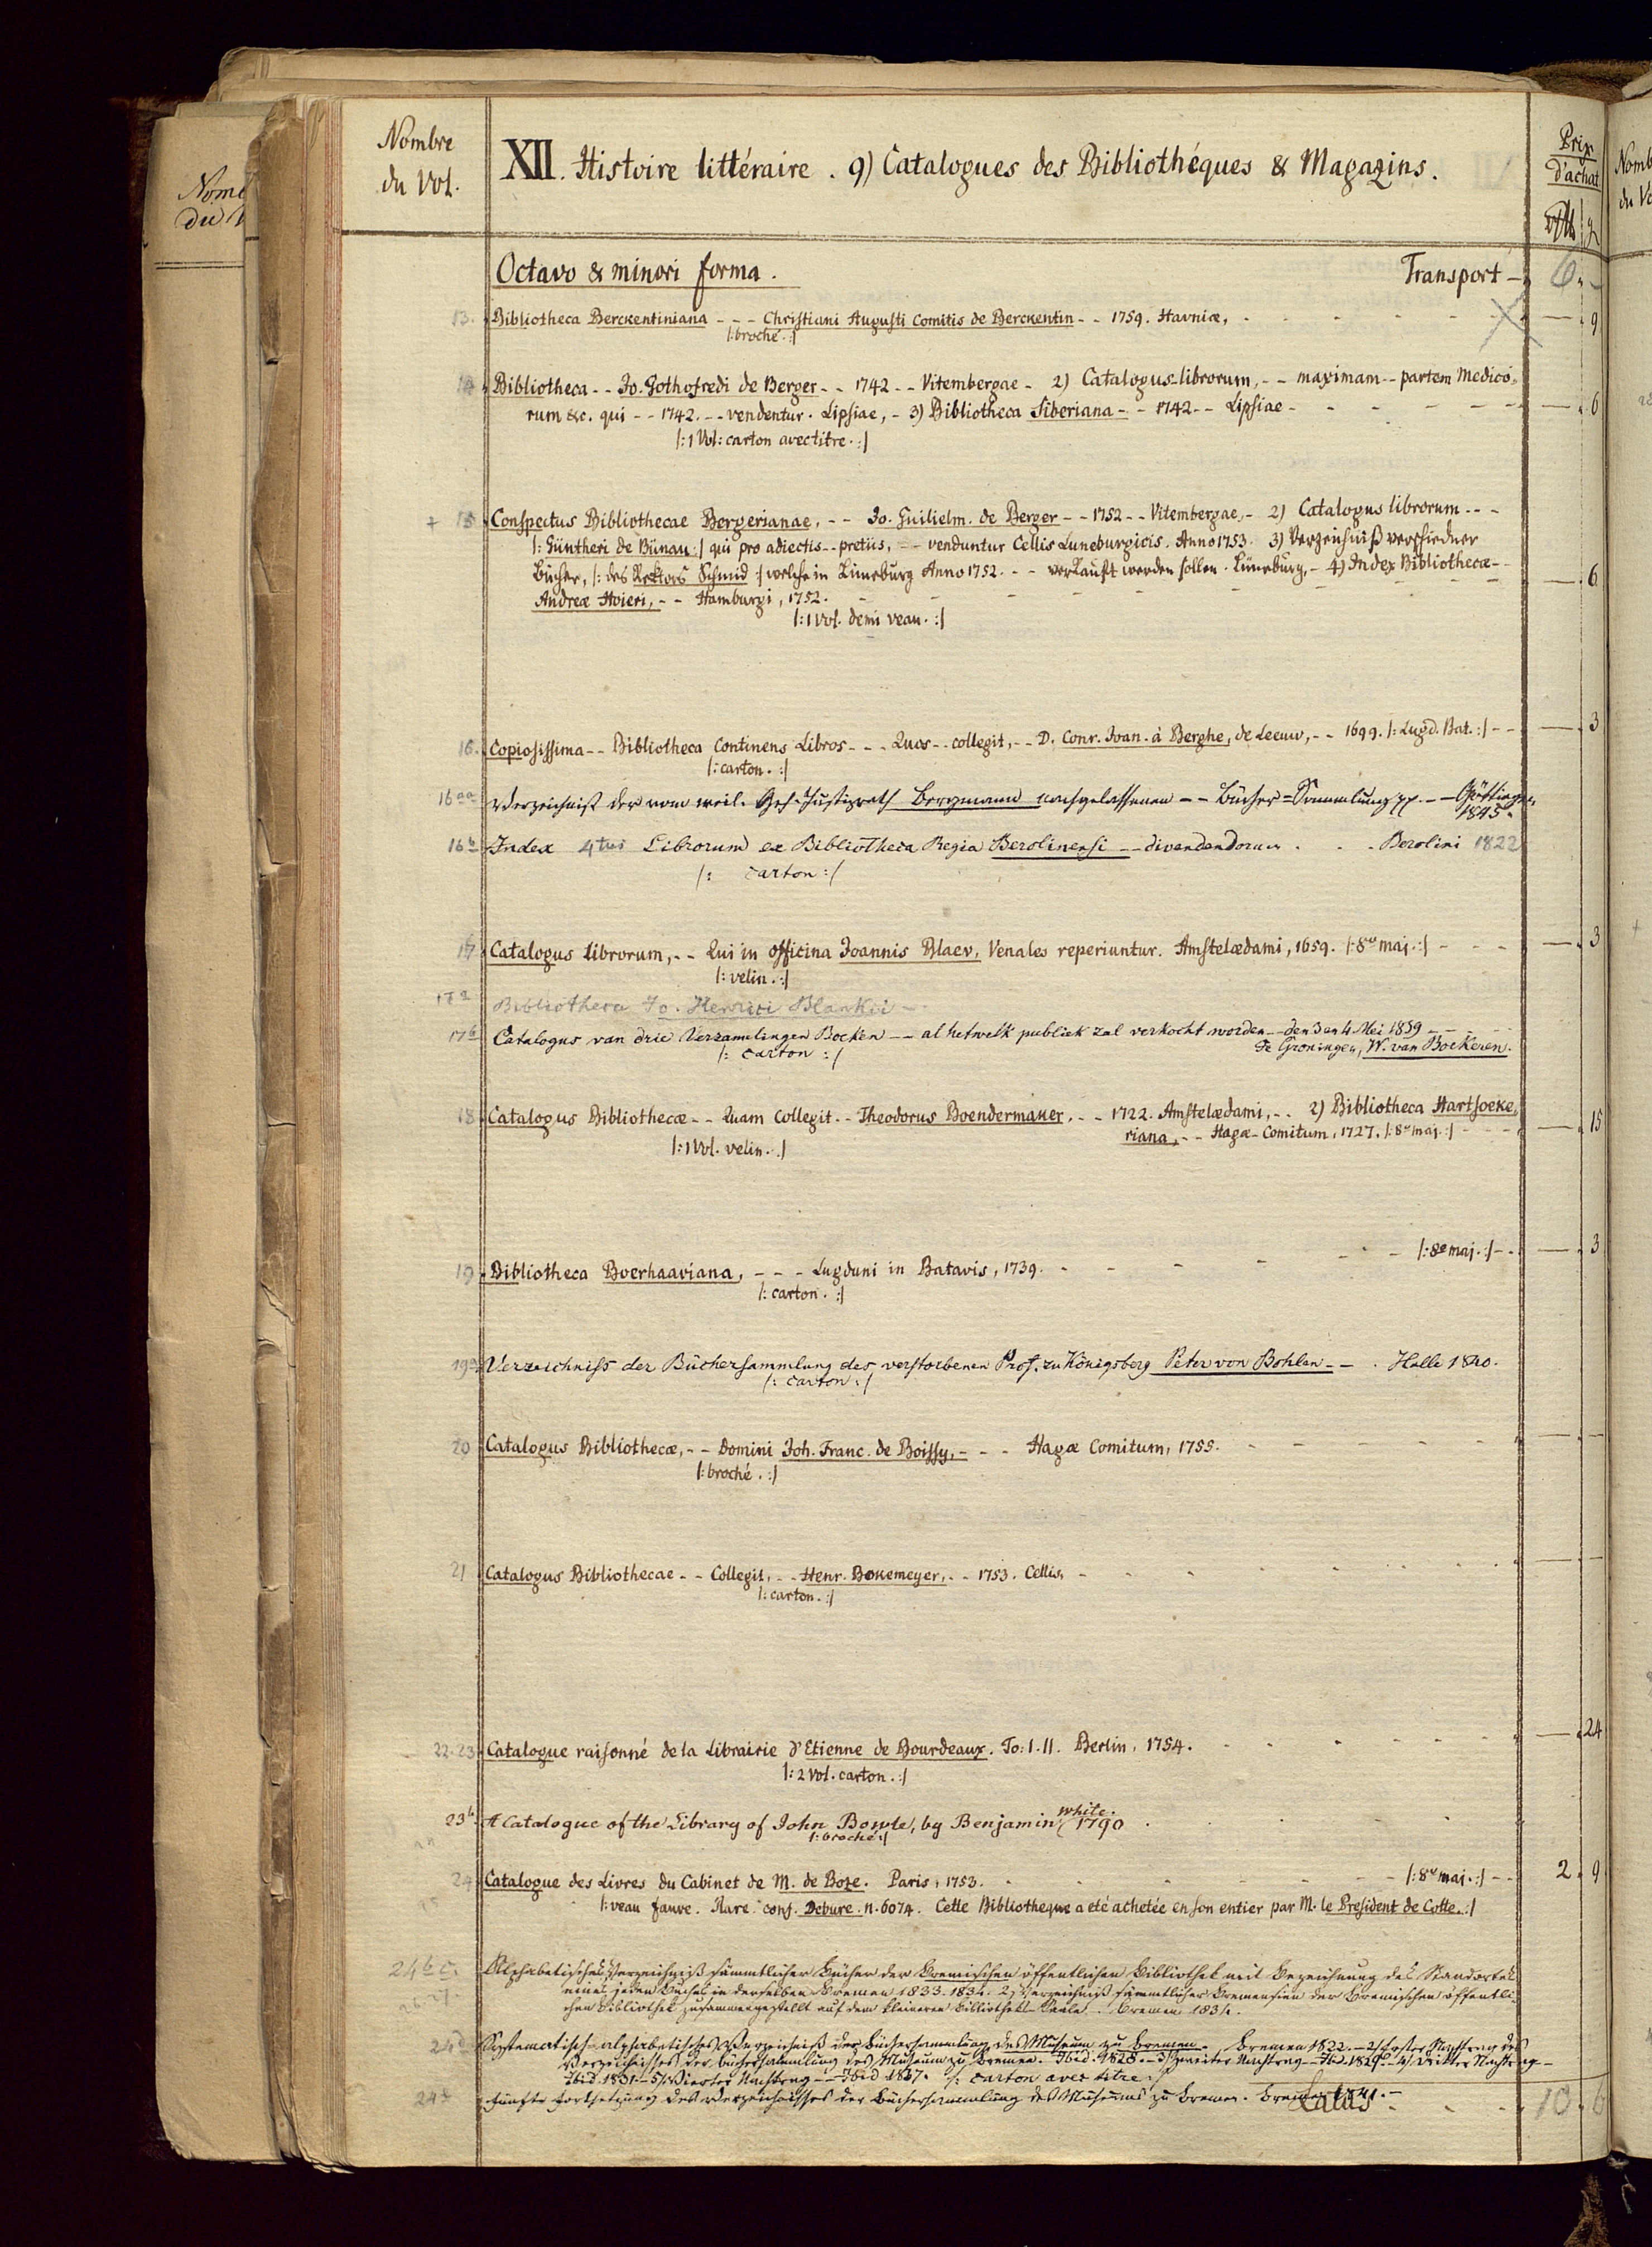 Nombre
du Vol.
XII. Histoire littéraire. 9) Catalogues des Bibliothéques & Magazins.
Prix
d'achat
Octavo & minori forma. Transport – 6. –
13. Bibliotheca Berckentiniana - - - Christiani Augusti Comitis de Berckentin - - 1759. Havniæ, — 9
|: broché. :|
14 Bibliotheca - - Jo. Gothofredi de Berger - - 1742 - - Vitembergae - 2) Catalogus librorum, - - maximam - - partem Medico-
rum &c. qui - - 1742. - - vendentur. Lipsiae, - 3) Bibliotheca Siberiana - - 1742 - - Lipsiae - — 6
|: 1 Vol: carton avec titre. :|
+ 15 Conspectus Bibliothecae Bergerianae, - - Jo. Guilielm. de Berger - - 1752 - - Vitembergae, - 2) Catalogus librorum - - -
|: Güntheri de Bünau :| qui pro adiectis - - pretiis, - - venduntur Cellis Luneburgicis. Anno 1753. 3) Verzeichniß verschiedner
Bücher, |: des Rektors Schmid :| welche in Lüneburg Anno 1752. - - - verkauft werden sollen. Lüneburg, - 4) Index Bibliothecæ - -
Andreæ Hoieri, - - Hamburgi, 1752. — 6
|: 1 Vol. demi veau. :|
16. Copiosissima - - Bibliotheca Continens Libros - - - Quos - - collegit, - - D. Conr. Joan. à Berghe, de Leeuw, - - 1699. |: Lugd. Bat. :| - - — 3
|: carton. :|
16aa Verzeichniß der vom weil. Geh. Justizrath Bergmann nachgelassenen - - Bücher=Sammlung pp. - - Göttingen
1845.
16b Index 4tus Librorum ex Bibliotheca Regia Berolinensi - - divendendorum . . . Berolini 1822
|: carton :|
17 Catalogus librorum, - - Qui in officina Joannis Blaev, Venales reperiuntur. Amstelædami, 1659. |: 8vo maj. :| - - - — 3
|: velin. :|
17a Bibliotheca Jo. Henrici Blankii -
17b Catalogus van drie Verzamelingen Boeken - - al hetwelk publiek zal verkocht worden - - den 3 en 4 Mei 1859 - -
|: carton :| Te Groningen, W. van Boekeren.
18 Catalogus Bibliothecæ - - Quam Collegit - - Theodorus Boendermaker, - - 1722. Amstelædami, - - 2) Bibliotheca Hartsoeke-
riana, - - Hagæ-Comitum, 1727. |: 8vo maj. :| - - - — 15
|: 1 Vol. velin. :|
|: 8o maj. :| - - — 3
19 Bibliotheca Boerhaaviana, - - - Lugduni in Batavis, 1739.
|: carton. :|
19a Verzeichniss der Büchersammlung des verstorbenen Prof. zu Königsberg Peter von Bohlen - - . Halle 1840.
|: carton :|
20 Catalogus Bibliothecæ, - - Domini Joh. Franc. de Boissy, - - - Hagæ Comitum, 1755.
|: broché. :|
21 Catalogus Bibliothecae - - Collegit, - - Henr. Bokemeyer, - - 1753. Cellis,
|: carton. :|
22.23 Catalogue raisonné de la Librairie d'Etienne de Bourdeaux. To: I. II. Berlin, 1754. — 24
|: 2 Vol. carton. :|
23b A Catalogue of the Library of John Bowle, by Benjamin White. 1790
|: broché :|
24 Catalogue des Livres du Cabinet de M. de Boze. Paris, 1753. |: 8vo maj. :| - - 2. 9
|: veau fauve. Rare. conf. Debure. n. 6074. Cette Bibliotheque a eté achetée en son entier par M. le President de Cotte. :|
24b c. Alphabetisches Verzeichniß sämmtlicher Bücher der Bremischen öffentlichen Bibliothek mit Bezeichnung des Standortes
eines jeden Buches in derselben Bremen 1833. 1834. 2) Verzeichniß sämmtlicher Bremensien der Bremischen öffentli-
chen Bibliothek zusammengestellt auf dem kleineren Bibliothek-Saale. Bremen 1834.
24d Systematisch-alphabetisches Verzeichniß der Büchersammlung des Museum zu Bremen. Bremen 1822. - 2) Erster Nachtrag des
Verzeichnisses der Büchersammlung des Museum zu Bremen. Ibid. 1828. - 3) Zweiter Nachtrag - Ibid. 1829. - 4) Dritter Nachtrag -
Ibid 1831 - 5) Vierter Nachtrag - - Ibid 1837. |: carton avec titre :|
24e Fünfte Fortsetzung des Verzeichnisses der Büchersammlung des Museums zu Bremen. Bremen 1841. -
Latus - 10. 6